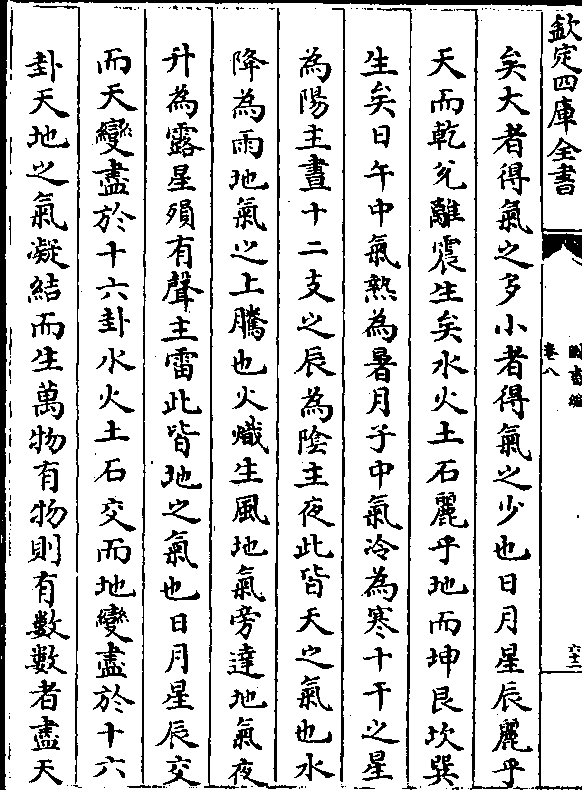 欽定四庫全書
圖書編
卷八
矣大者得氣之多小者得氣之少也日月星辰麗乎
天而乾兌離震生矣水火土石麗乎地而坤艮坎巽
生矣日午中氣熱為暑月子中氣冷為寒十干之星
為陽主晝十二支之辰為陰主夜此皆天之氣也水
降為雨地氣之上騰也火熾生風地氣旁達地氣夜
升為露星殞有聲主雷此皆地之氣也日月星辰交
而天變盡於十六卦水火土石交而地變盡於十六
卦天地之氣凝結而生萬物有物則有數數者盡天